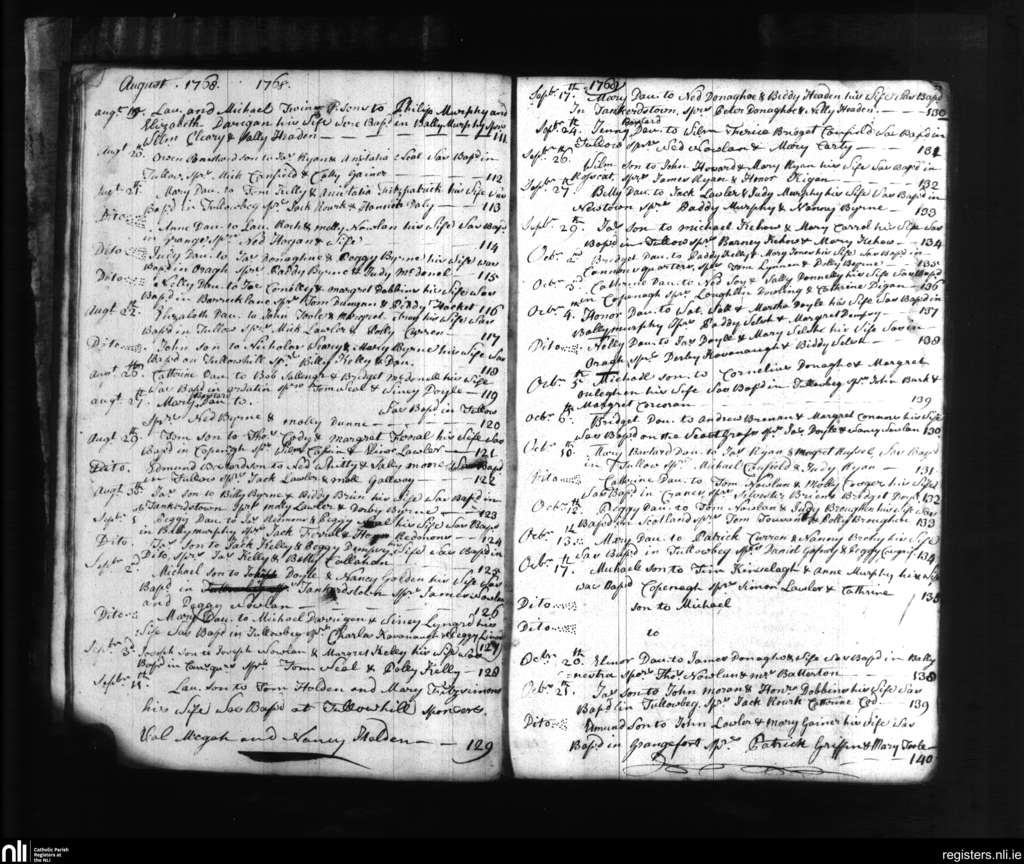 August . 1768. 1768.
augt 19. Lau. and Michael Twins Sons to Philip Murphy and
Elizabeth Darcgan his Wife were Bap'd in Ballymurphy Spors
Willm Cleary & Sally Headen 111
Augt 20. Owen Bastard son to Jas Ryan & Anstatia Neal Was Bap'd in
Tullow Sprs Mich Canfield & Catty Gainor 112
Augt 21. Mary Dau. to Tom Tully & Anistatia Fitzpatrick his Wife Was
Bap'd in Tullowbeg Sprs Jack Rourk & Daly 113
Dito Anne Dau to Lau. Roch & Molly Nowlan his Wife Was Bap'd
in Grange Sprs Ned Hogan & Wife 114
Dito Judy Dau to Jas Donaghue & Peggy Byrne his Wife was
Bap'd in Oragh Sprs Paddy Byrne & Judy McDonel 115
Dito Nelly Dau. to Joe Connolley & Margret Dobbin his Wife Was
Bap'd in Barrack lane Sprs Tom Dungan & Biddy Hacket 116
Augt 22. Elizabeth Dau. to John Toole & Margret his Wife Was
Bap'd in Tullow Sprs Mick Lawler & Polly Curren 117
Dito John Son to Nicholas & Mary Byrne his Wife Was
Bap'd on Tullowhill Sprs Billy Kelly & Dan. 118
augt 26. Cattrine Dau to Bob Sallenger & Bridget McDonell his Wife
Was Bap'd in Sprs Tom Neal & Siney Doyle 119
augt 27. Mary Bastard Dau. to Was Bap'd in Tullow
Sprs Ned Byrne & Molly Dunne 120
Augt 29. Tom Son to Thos Cody & Margret his Wife Was
Bap'd in Copenagh Sprs & Elinor Lawler 121
Dito. Edmund Bastard son to Ned & Sally Moore Was Bap'd
in Tullow Sprs Jack Lawler & Moll Gallway 122
Augt 30. Jas son to Billy Byrne & Biddy Brien his Wife Was Bap'd in
Tankerdstown Sprs Mary Lawler & Darby Byrne 123
Septr 1 Peggy Dau. to Jas Redmond & Peggy his Wife Was Bap'd
in Ballymurphy Sprs Jack & Redmond 124
Dito. Jas Son to Jack Kelly & Peggy Dempsy his Wife Was Bap'd in
Dito. Sprs Jas Kelly & Betty Callahan 125
Septr 2d Michael Son to Joseph Doyle & Nancy Golden his Wife Was
Bap'd in Tankerdstown Sprs James Nowlan
and Peggy Nowlan 126
Dito Mary Dau. to Michael Darrigan & Siney Lynard his
Wife Was Bap'd in Tullowbeg Sprs Charles Kavanaugh & Peggy 127
Septr 3d Joseph Son to Joseph Nowlan & Margaret Kelly his Wife Was
Bap'd in Sprs Tom Neal & Polly Kelly 128
Septbr 11th Lau. son to Tom Holden and Mary Fitzsimons
his Wife Was Bap'd at Tullowhill Sponcers
Val Megah and Nancy Holden 129
1768
Septr 17th. Mary Dau to Ned Donaghoe & Biddy Headen his Wife Was Bap'd
In Tankerdstown, Sprs Peter Donaghoe & Nelly Headen 130
Septr 24th Jenny Bastard Dau to Silv. & Bridget Canfield Was Bap'd in
Tullow Sprs Ned Nowlan & Mary Carty 131
Septr 26. Willm Son to John Howard & Mary Ryan his Wife Was Bap'd in
Roscat, Sprs James Ryan & Honor 132
Septr 27. Betty Dau. to Jack Lawler & Judy Murphy his Wife Was Bap'd in
Newtown Sprs Paddy Murphy & Nanny Byrne 133
Septr 29th. Jas Son to Michael Kehow & Mary Carrol his Wife Was
Bap'd in Tullow Sprs Barney Kehow & Mary Kehow 134
Octr 2d Bridget Dau. to Paddy Kelly & Mary Jones his Wife Was Bap'd in
Cannon quarters, Sprs Tom Lynnan & Dolly Byrne 135
Octr 3d Cathrine Dau. to Ned Joy & Sally Donnelly his Wife Was Bap'd
in Copenagh Sprs Loughlin Dowling & Cathrine Digan 136
Octr 4. Honor Dau to Pat. & Martha Doyle his Wife Was Bap'd in
Ballymurphy Sprs Paddy & Margret Dempsy 137
Dito Nelly Dau. to Jas Doyle & Mary his Wife Was in
Oragh Sprs Derby Kavanaugh & Biddy 138
Octbr 5th Michael son to Cornelius Donagho & Margret
his Wife Was Bap'd in Tullowbeg Sprs John Burk &
Margret Corcoran 139
Octbr 6th Bridget Dau. to Andrew Brenan & Margret Connor his Wife
Was Bap'd on the Sprs Jas Doyle & Nancy Nowlan 130
Octbr 10th Mary Bastard Dau. to Jas Ryan & Margret Was Bap'd
in Tullow Sprs Michael Canfield & Judy Ryan 131
Dito Cathrine Dau. to Tom Nowlan & Molly his Wife
Was Bap'd in Craney Sprs Silvester Brien & Bridget 132
Octbr 12. Peggy Dau. to Tom Nowlan & Judy Broughen his Wife Was
Bap'd in Scotland Sprs Tom & Polly Broughen 133
Octbr 13th Mary Dau. to Patrick Curren & Nanny his Wife
Was Bap'd in Tullowbeg Sprs David & Peggy 134
Octbr 17th. Michael Son to Tim Kinselagh & Anne Murphy his Wife
was Bap'd Copenagh Sprs Simon Lawler & Cathrine 135
Dito son to Michael
Dito
to
Octbr 20th. Elinor Dau. to James Donagho & Wife Was Bap'd in Balky
Sprs Thos Nowlan & Mrs Batterton 138
Octbr 21st. Jas Son to John Moran & Honr Dobbin his Wife Was
Bap'd in Tullowbeg Sprs Jack Rourk Cattrine Cod 139
Dito Edmund Son to John Lawler & Mary Gainor his Wife Was
Bap'd in Grangefort Sprs Patrick Griffin & Mary Toole
140
nli Catholic Parish
Registers at
the NLI
registers.nli.ie